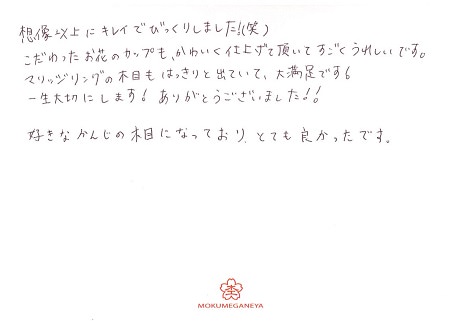 想像以上にキレイでびっくりしました!(笑)
こだわったお花のカップも、かわいく仕上げて頂いてすごくうれしいです。
マリッジリングの木目もはっきりと出ていて、大満足です!
一生大切にします! ありがとうございました!!
好きなかんじの木目になっており、とても良かったです。
MOKUMEGANEYA